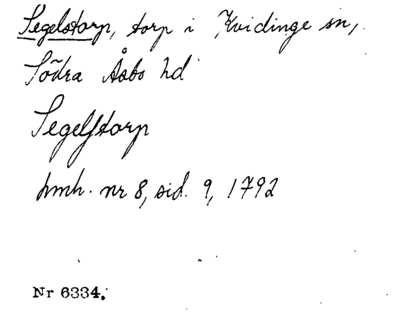 Segelstorp, torp i Kvidinge sn,
Södra Åsbo hd
Segelstorp
hmh. nr 8, sid. 9, 1792
Nr 6334.